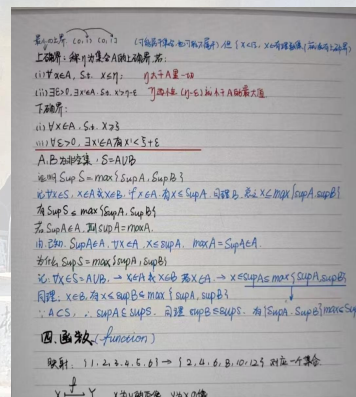 最小的上界 (0,1) (0,1]
上确界：称η为集合A的上确界，若：
(i)∀x∈A, S.t. x≤η;
(ii)∃ε>0, ∃x'∈A, S.t. x'>η-ε
下确界：
(i) ∀x∈A, S.t. x≥ξ
(ii)∀ε>0, ∃x'∈A有x'<ξ+ε
A.B为非空集, S=A∪B
证明 Sup S = max{SupA, SupB}
论∀x∈S, x∈A或x∈B, 若x∈A, 有x≤SupA, 同理B, 总之x≤max{supA, supB}
有SupS≤max{supA, supB}
若SupA∈A, 则supA=maxA.
由 SupA∈A, ∀x∈A, x≤supA. maxA=SupA∈A.
SupS=max{supA, supB}
∀x∈S=A∪B, → x∈A或x∈B 若x∈A, → x≤supA≤max{supA, supB}
同理, x∈B, 有x≤supB≤max{supA, supB}
∵A⊂S, ∴supA≤supS. 同理supB≤supS. 有{SupA, SupB}max≤Sup
四. 函数 (function)
映射: {1,2,3,4,5,6} → {2,4,6,8,10,12} 对应一个集合
X f→ Y